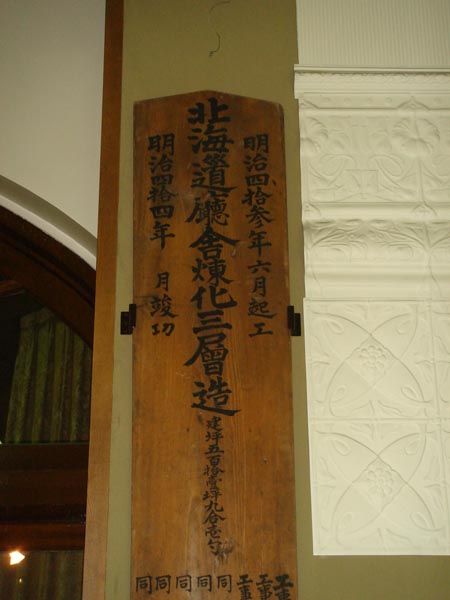 明治四拾参年六月起工
北海道廳舎煉化三層造
建坪五百拾壹坪九合壱勺
明治四拾四年 月竣功
工事
工事
工事
同
同
同
同
同